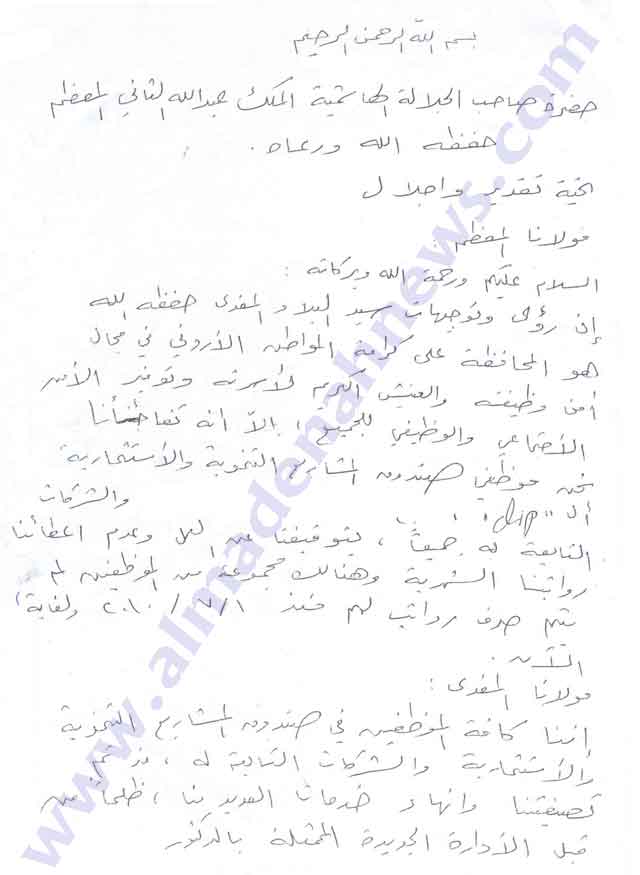 بسم الله الرحمن الرحيم
حضرة صاحب الجلالة الهاشمية الملك عبدالله الثاني المعظم
حفظه الله ورعاه .
تحية تقدير واجلال
مولانا المعظم :
السلام عليكم ورحمة الله وبركاته :
إن رؤى وتوجيهات سيد البلاد المفدى حفظه الله
هو المحافظة على كرامة المواطن الأردني في مجال
أمن وظيفته والعيش الكريم لأسرته وتوفير الأمن
الأجتماعي والوظيفي للجميع ، إلاّ أنه تفاجئنا
نحن موظفي صندوق المشاريع التنموية والأستثمارية
والشركات
ألـ "dip"
التابعة له جميعاً ، بتوقيفنا عن العمل وعدم اعطائنا
رواتبنا الشهرية وهنالك مجموعة من الموظفين لم
يتم صرف رواتب لهم منذ ٢٠١٠/٧/١ ولغاية
الآن .
مولانا المفدى :
إننا كافة الموظفين في صندوق المشاريع التنموية
والأستثمارية والشركات التابعة له ، قد تم
تصفيتنا وانهاء خدمات العديد منا ، ظلماً من
قبل الأدارة الجديدة الممثلة بالدكتور
www.almadenahnews.com